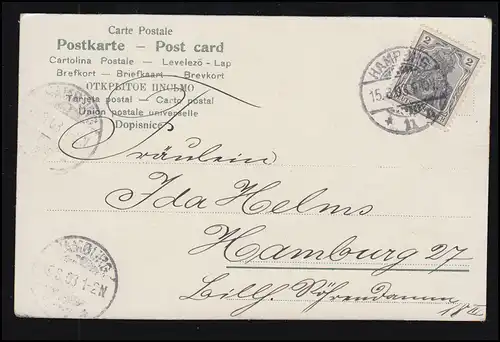 Carte Postale
Postkarte — Post card
Cartolina Postale — Levelező - Lap
Brefkort — Briefkaart — Brevkort
ОТКРЫТОЕ ПИСЬМО
Tarjeta postal — Carto postal
Union postale universelle
Dopisnice
HAMBURG
15.8.03
* 11
2
2
Fräulein
Ida Helms
Hamburg 27
Billh. Röhrendamm
HAMBURG
HAMBURG
5.8.03 1-2N